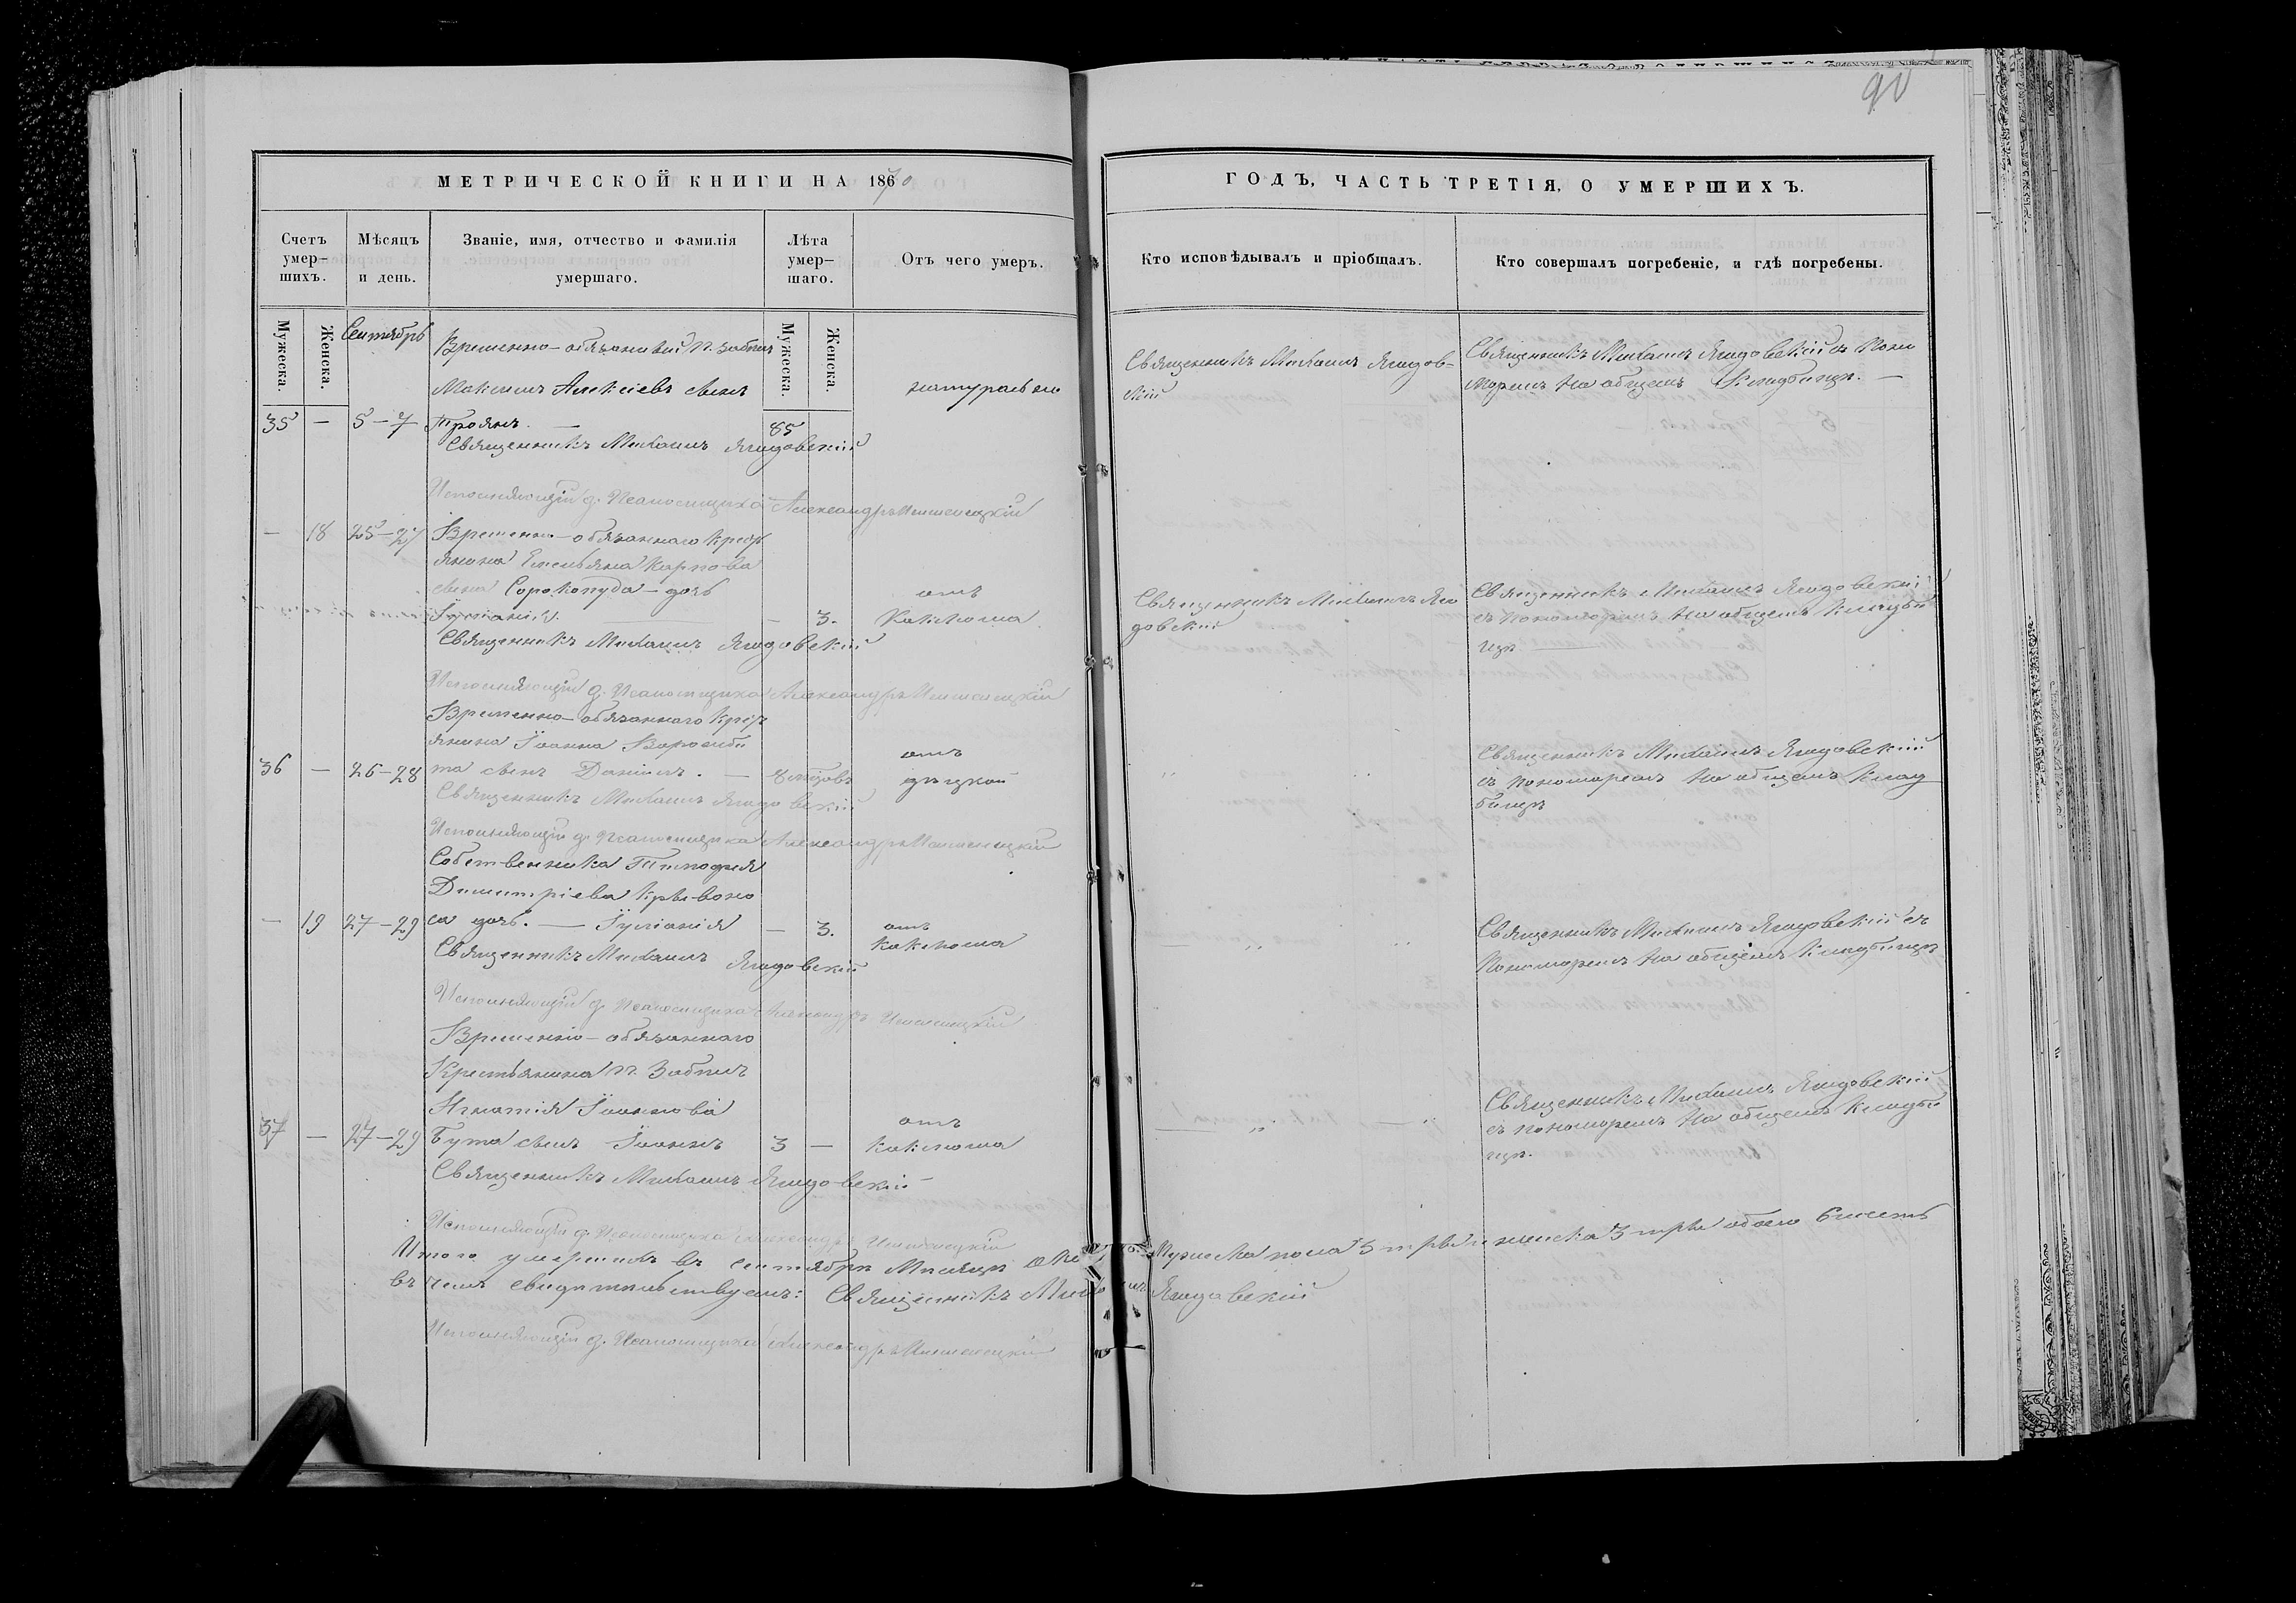 90
МЕТРИЧЕСКОЙ КНИГИ НА 1870
ГОДЪ, ЧАСТЬ ТРЕТІЯ, О УМЕРШИХЪ.
Счетъ умер-
шихъ.
Мѣсяцъ
и день.
Званіе, имя, отчество и фамилія
умершаго.
Лѣта
умер-
шаго.
Отъ чего умеръ.
Кто исповѣдывалъ и пріобщалъ.
Кто совершалъ погребеніе, и гдѣ погребены.
Мужеска.
Женска.
Сентябрь
Мужеска.
Женска.
Временно-обязанный
Максимъ Алексіевъ сынъ
35 — 5-7 Троянъ. — 85
натурально
Священникъ Михаилъ Ягодов-
скій
Священникъ Михаилъ Ягодовскій съ Поно
маремъ на общемъ Кладбищѣ. —
Священникъ Михаилъ Ягодовскій
Исполняющій д. Псаломщика Александръ
— 18 25-27 Временно-обязаннаго Крест
янина Емельяна Карпова
сына Сорокопуда - дочь
Іуліанія. — — 3.
отъ
Коклюша
Священникъ Михаилъ Яго
довскій
Священникъ Михаилъ Ягодовскій
съ пономаремъ на общемъ Кладби
щѣ —
Священникъ Михаилъ Ягодовскій
Исполняющій д. Псаломщика Александръ
Временно-обязаннаго Крест
янина Іоанна
36 — 26-28 та сынъ Даніилъ. —
отъ
Священникъ Михаилъ Ягодовскій
съ пономаремъ на общемъ Клад
бищѣ
Священникъ Михаилъ Ягодовскій
Исполняющій д. Псаломщика Александръ
Собственника Тимофея
Димитріева Кривоно
— 19 27-29 са дочь. — Іуліанія — 3.
отъ
коклюша
Священникъ Михаилъ Ягодовскій съ
Пономаремъ на общемъ Кладбищѣ
Священникъ Михаилъ Ягодовскій
Исполняющій д. Псаломщика Александръ
Временно-обязаннаго
Крестьянина
Игнатія Іоаннова
37 — 27-29 Бута сынъ Іоаннъ 3 —
отъ
коклюша
Священникъ Михаилъ Ягодовскій
съ пономаремъ на общемъ Кладби
щѣ.
Священникъ Михаилъ Ягодовскій
Исполняющій д. Псаломщика Александръ
Итого умершихъ въ сентябрѣ Мѣсяцѣ Мужеска пола 3 три женска 3 три обоего 6 шесть
въ чемъ свидѣтельствуемъ: Священникъ Михаилъ Ягодовскій
Исполняющій д. Псаломщика Александръ